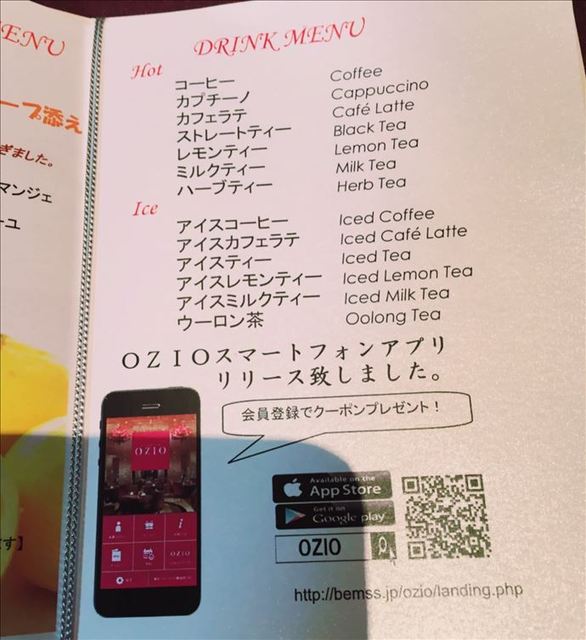 ENU
ープ添え
ぎました。
マンジェ
ーユ
す】
DRINK MENU
Hot
コーヒー Coffee
カプチーノ Cappuccino
カフェラテ Café Latte
ストレートティー Black Tea
レモンティー Lemon Tea
ミルクティー Milk Tea
ハーブティー Herb Tea
Ice
アイスコーヒー Iced Coffee
アイスカフェラテ Iced Café Latte
アイスティー Iced Tea
アイスレモンティー Iced Lemon Tea
アイスミルクティー Iced Milk Tea
ウーロン茶 Oolong Tea
OZIOスマートフォンアプリ
リリース致しました。
会員登録でクーポンプレゼント！
OZIO
OZIO
Available on the
App Store
Get it on
Google play
OZIO
http://bemss.jp/ozio/landing.php